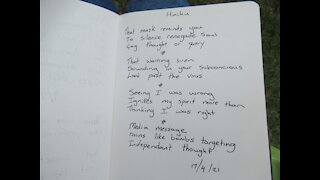 Haiku
That mask reminds you
To silence renegade souls
Gag thought or query
*
That warning siren
Sounding in your subconscious
Look past the virus
*
Seeing I was wrong
Ignites my spirit more than
Thinking I was right
*
Media message
rains like bombs targeting
Independant thought
17/9/21